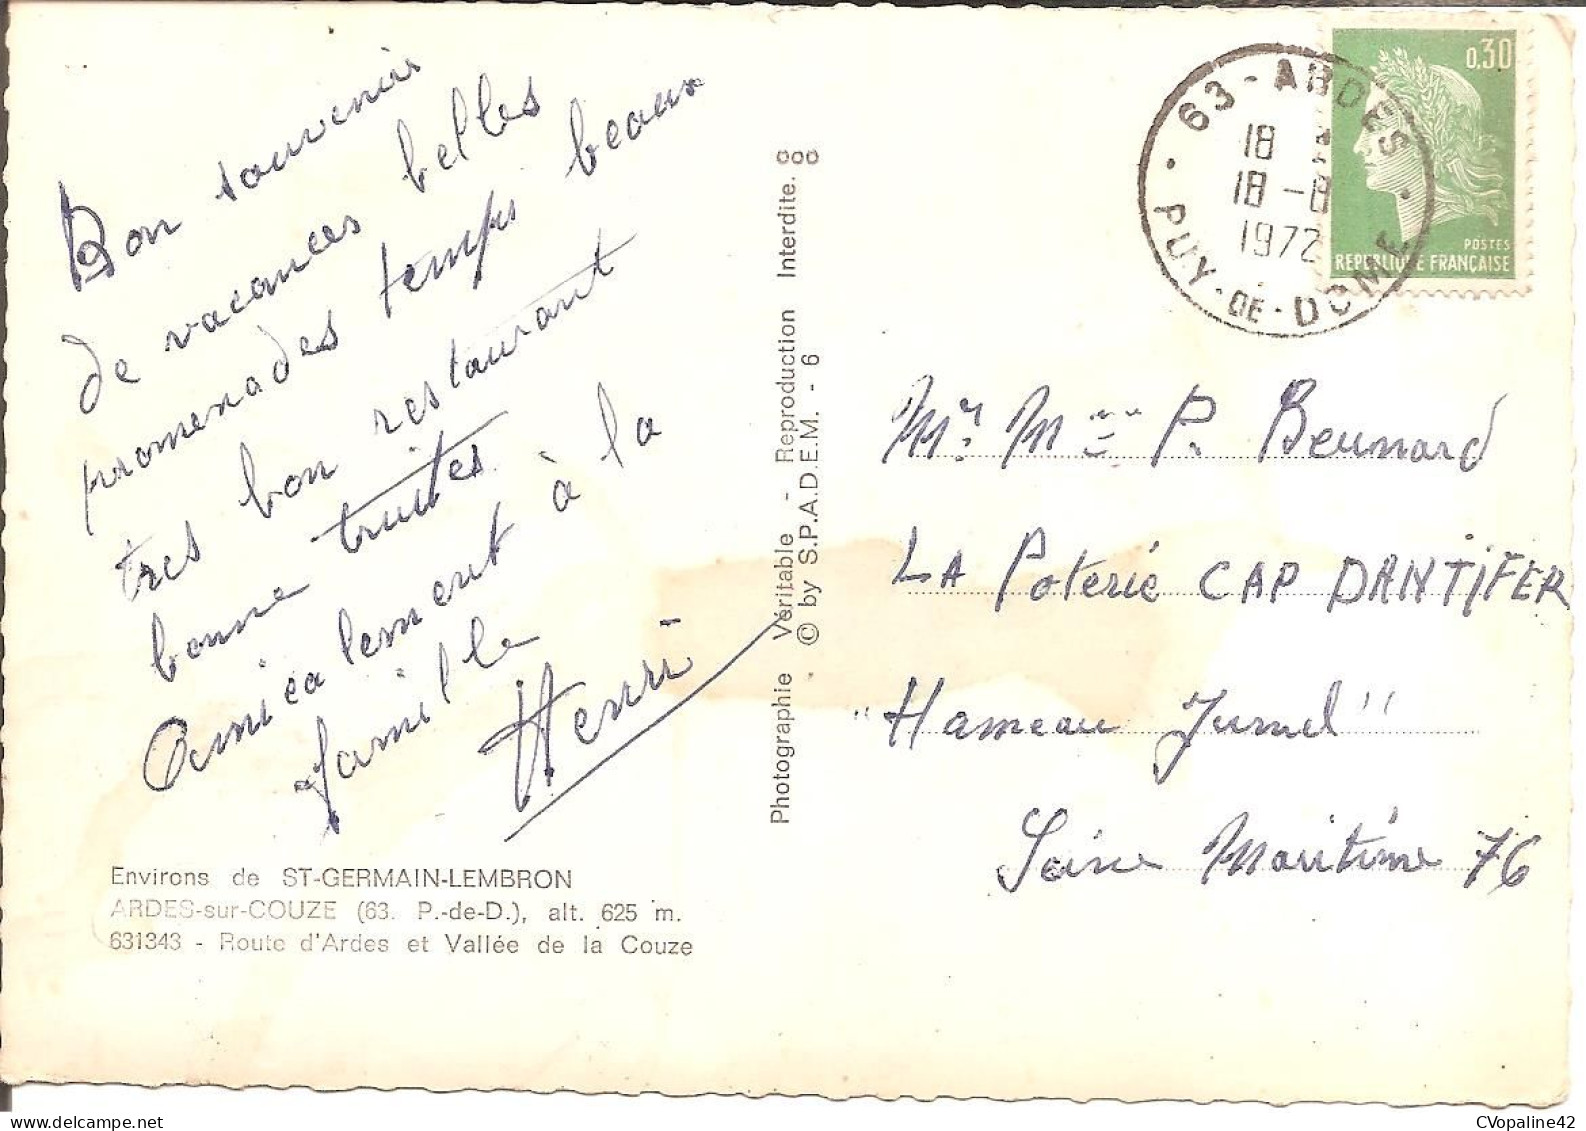 Bon souvenir
de vacances belles
promenades temps beaux
tres bon restaurant
bonne truites
Amicalement à la
famille
Henri
Environs de ST-GERMAIN-LEMBRON
ARDES-sur-COUZE (63. P.-de-D.), alt. 625 m.
631343 - Route d'Ardes et Vallée de la Couze
Photographie Véritable - Reproduction Interdite.
© by S.P.A.D.E.M. - 6
63 - ARDES
18
18 -8
1972
PUY-DE-DOME
0,30
POSTES
REPUBLIQUE FRANÇAISE
Mr. Mme P. Beunard
LA Poterie CAP D'ANTIFER
"Hameau Jumel"
Seine Maritime 76
CVopaline42